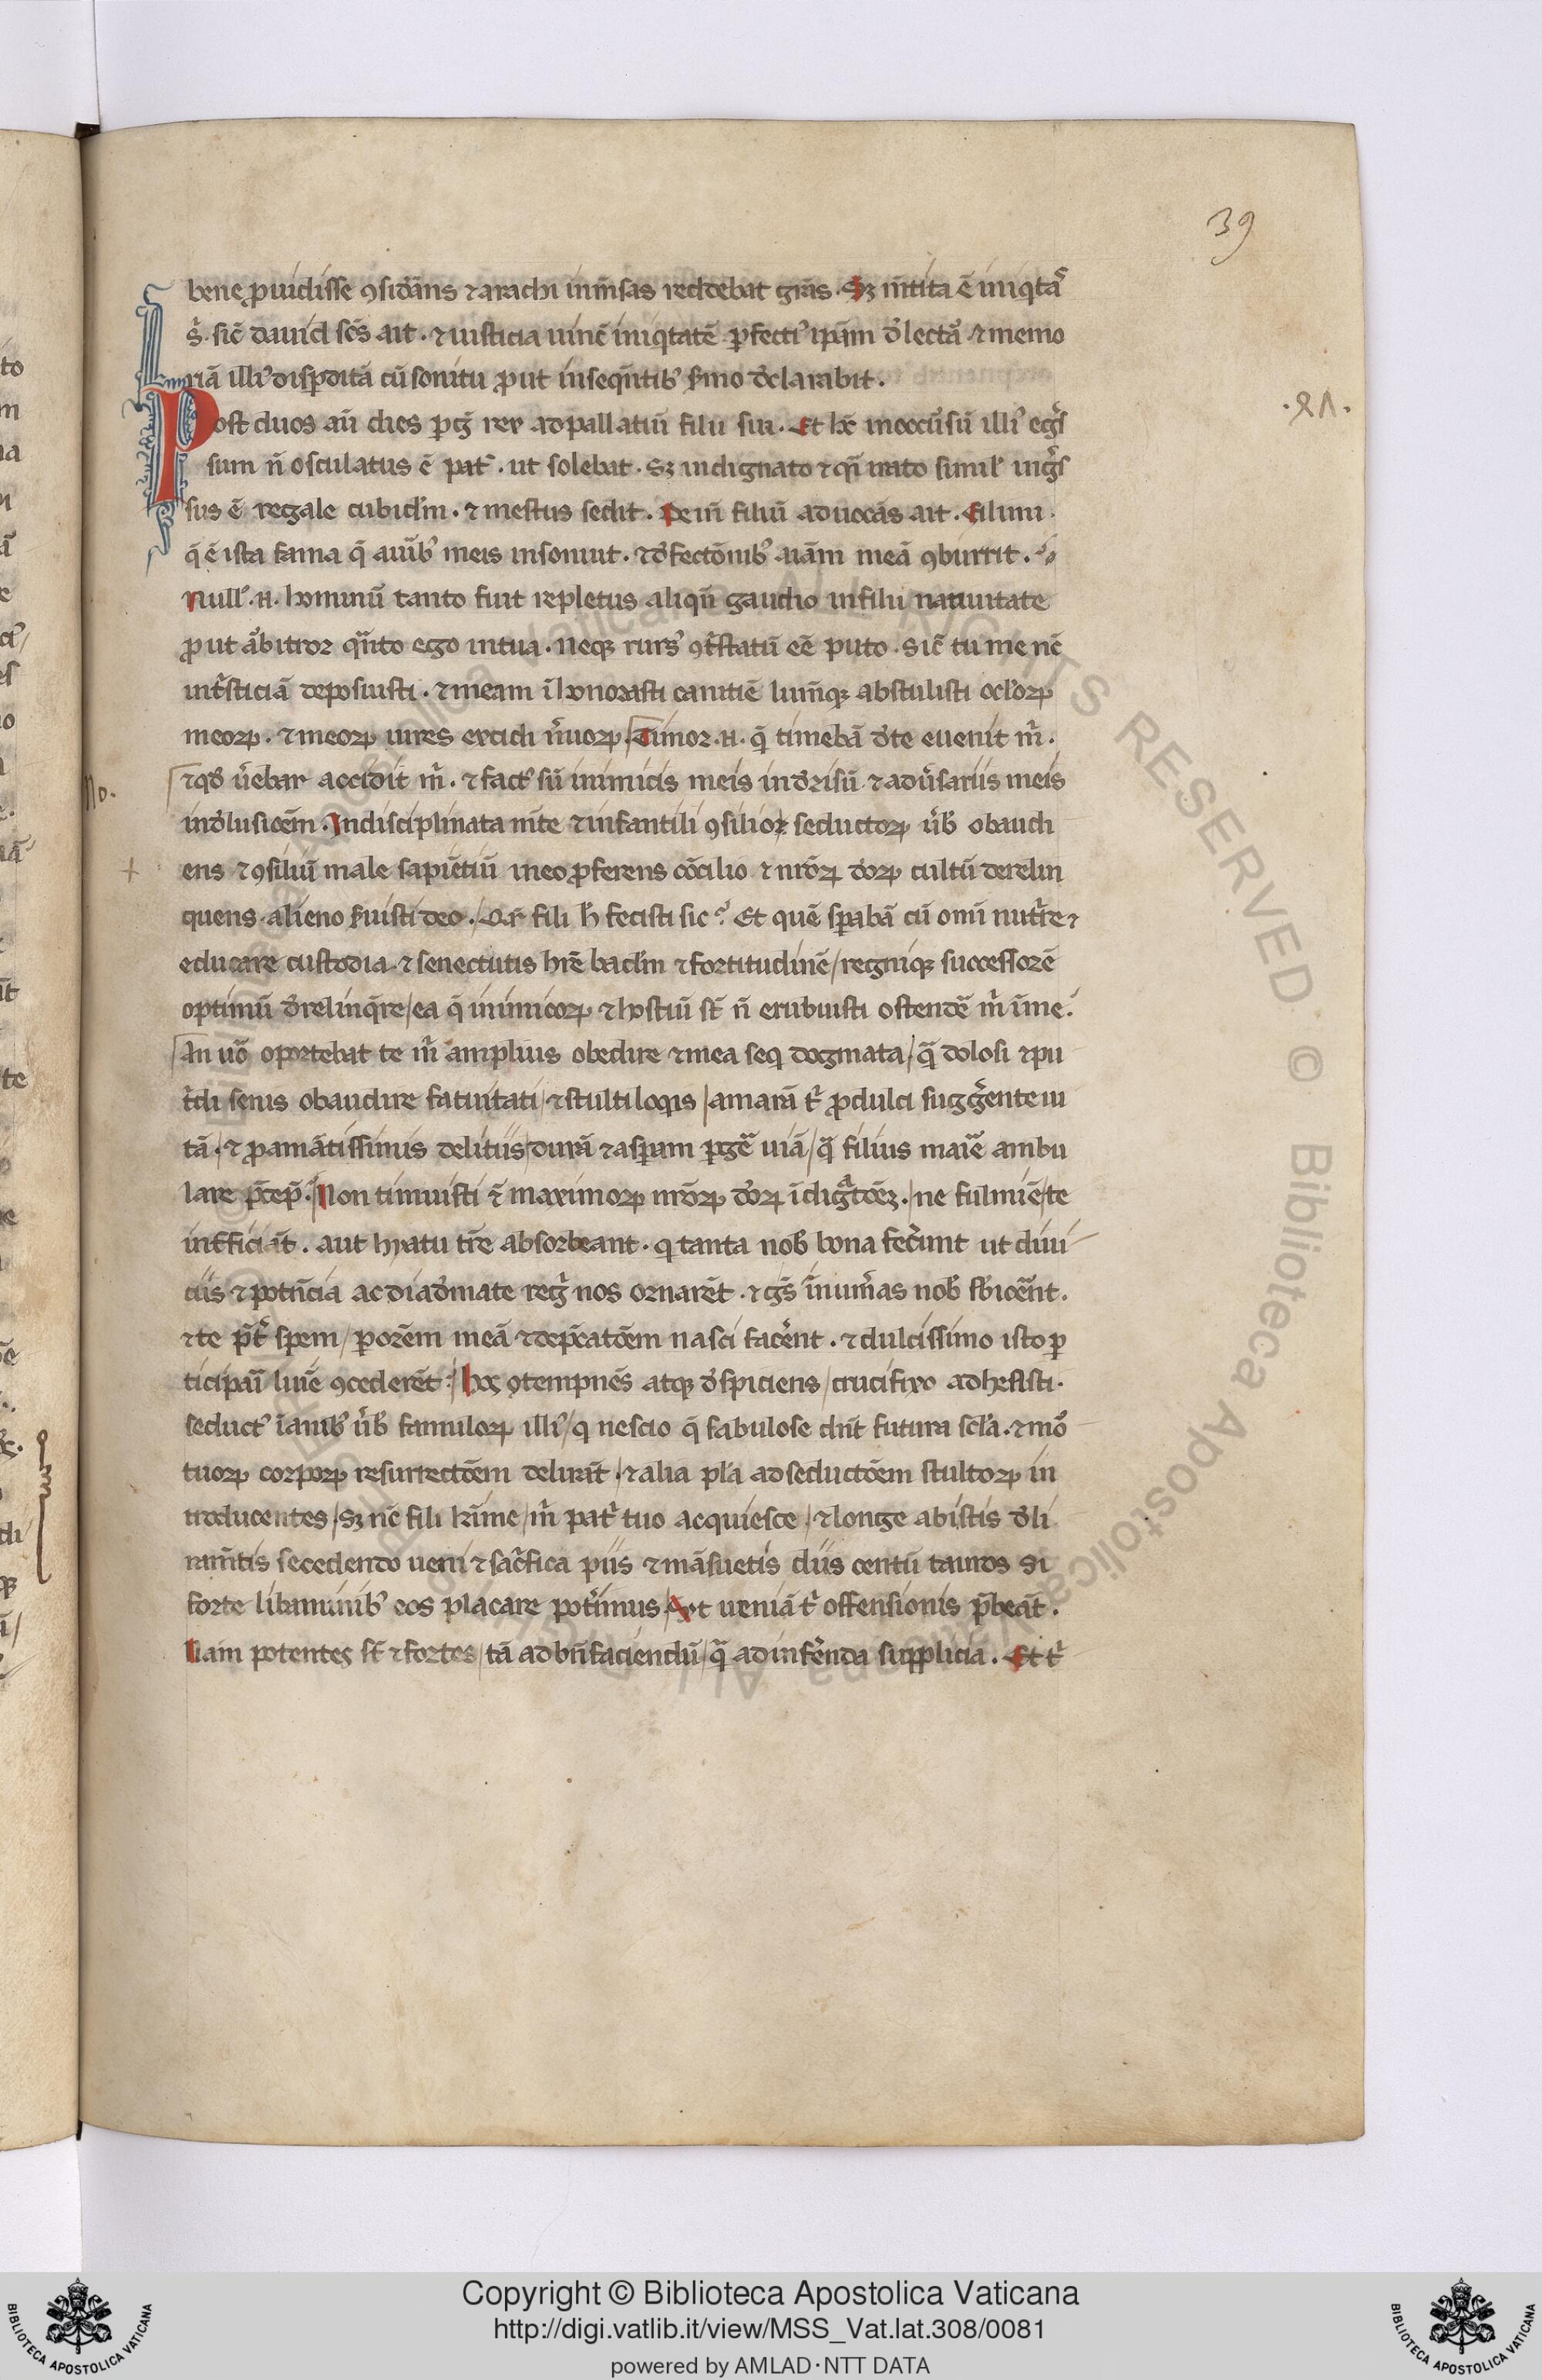 39
bene ꝓuidisse ꝯsid̾ans ⁊ arachi inmn̄sas reddebat grās. Sꝫ mētita ē iniq̇ta
s̾. sic̄ dauid sc̄s ait. ⁊ iusticia uincē iniq̇tatē ꝑfecti ip̄am d̾lectā ⁊ memo
riā illi' disꝑditā cū sonitu ꝓut in seq̄ntib' s̾mo d̾clarabit.
Post duos aū dies ꝑg̾ rex ad pallatiū filii sui. Et hc̄ in occ̾sū illi' eg̾s
.XΛ.
sum n̄ osculatus ē pat̾. ut solebat. Sꝫ indignato ⁊ q̄i irato simil' ing̾s
sus ē regale cubic̄lm. ⁊ mestus sedit. Dein̄ filiū aduocās ait. Fili mi
q̄ ē ista fama q̄ aurib' meis insonuit. ⁊ d̾fectōnib' aīam meā ꝯburrit.
null'. n. hominū tanto fuit repletus aliqn̄ gaudio in filii natiuitate
ꝓut ābitror q̄nto ego in tua. neqꝫ rurs' ꝯt̾statū eē puto. sic̄ tu me nc̄
in t̾sticiā deposuisti. ⁊ meam ihonorasti canitiē lum̄qꝫ abstulisti ocl'oꝝ
meoꝝ. ⁊ meoꝝ uires excidi n̾uoꝝ. Timor. n. q̄ timebā d̾ te euenit m̾.
No.
⁊ qd̾ u̾ebar accidit m̾. ⁊ fact' sū inimicis meis in d̾risū ⁊ adu̾sariis meis
in d̾lusiōem. Indisciplinata mn̄te ⁊ infantili ꝯsilio ⁊ seductoꝝ u̾b' obaudi
+
ens ⁊ ꝯsiliū male sapiētiū meo p̄ferens cōcilio ⁊ nrōꝝ d̾oꝝ cultū derelin
quens alieno s̾uisti deo. Qr̄ fili h̄ fecisti sic? Et quē sꝑabā cū omī nut̾re ⁊
educare custodia ⁊ senectutis hr̄e bacl'm ⁊ fortitudinē / regniqꝫ successorē
optimū d̾relinq̄re / ea q̄ inimicoꝝ ⁊ hostiū st̄ n̄ erubuisti ostendē m̾ i me?
An uō oportebat te m̾ amplius obedire ⁊ mea seq̇ dogmata / q̄ dolosi ⁊ pu
t̾di senis obaudire fatuitati / ⁊ stultiloq̇is / amarā t̾ ꝓ dulci sugg̾ente ui
tā / ⁊ ꝓ amātissimis delitiis / durā ⁊ asꝑam ꝑg̾e uiā / q̄ filius marie ambu
lare p̄cep̄. Non timuisti ⁊ maximoꝝ nrōꝝ d̾oꝝ idig̾tōēꝫ. / ne fulmiē / te
int̾ficiāt. aut hyatu tr̄e absorbeant. q̇ tanta nob' bona fec̾unt ut diui
ciis ⁊ potn̄cia ac diad̾mate reg̾ nos ornarēt. ⁊ g̾s inum̾as nob' sb'icēnt.
⁊ te p̄t̾ spem / ꝑ orōem meā ⁊ dep̄catōem nasci fac̾ent. ⁊ dulcissimo isto ꝑ
ticipari lumē ꝯcederēt. hoc ꝯtempnēs atqꝫ d̾spiciens / crucifixo adhesisti.
seduct' ianib' u̾b' famuloꝝ illi' / q̇ nescio q̄ fabulose dn̄t futura sc̄la. ⁊ mo̾
tuoꝝ corpoꝝ resurrectōem delirāt / ⁊ alia pl'a ad seductōem stultoꝝ in
troducentes / Sꝫ nc̄ fili kr̄ime / m̾ pat̾ tuo acquiesce / ⁊ longe ab istis d̾li
ram̄tis secedendo ueni ⁊ sac̾fica piis ⁊ māsuetis diis centū tauros Si
forte libaminib' eos placare pot̾imus / Vt ueniā t̾ offensionis p̄beāt.
Nam potentes st̄ ⁊ fortes / tā ad bn̄faciendū / q̄ ad inf̾enda supplicia. Et t̾
Copyright © Biblioteca Apostolica Vaticana
http://digi.vatlib.it/view/MSS_Vat.lat.308/0081
powered by AMLAD·NTT DATA
BIBLIOTECA APOSTOLICA VATICANA
BIBLIOTECA APOSTOLICA VATICANA